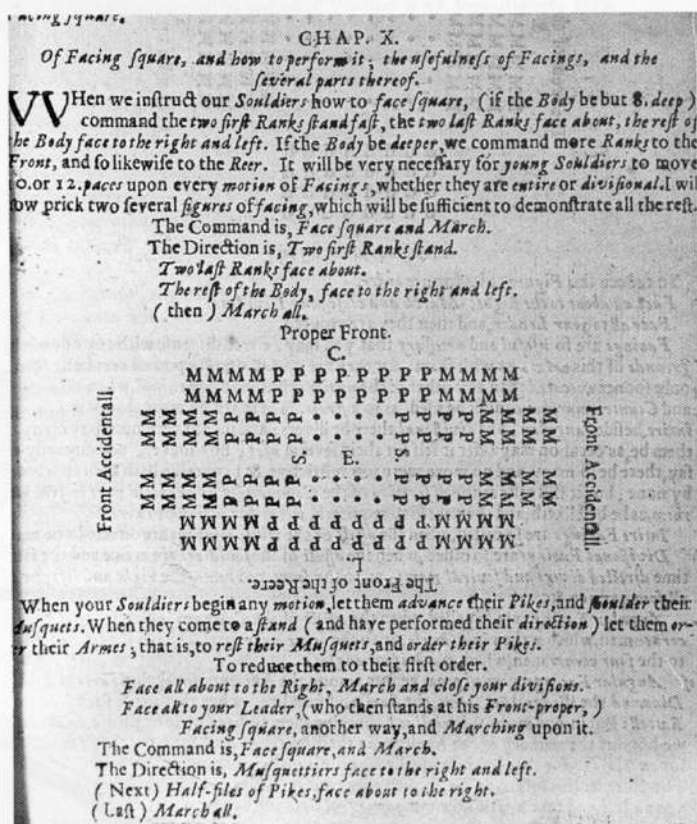 Facing ſquare.
CHAP. X.
Of Facing ſquare, and how to perform it; the uſefulneſs of Facings, and the
ſeveral parts thereof.
WHen we inſtruct our Souldiers how to face ſquare, (if the Body be but 8. deep)
command the two firſt Ranks ſtand faſt, the two laſt Ranks face about, the reſt of
the Body face to the right and left. If the Body be deeper, we command more Ranks to the
Front, and ſo likewiſe to the Reer. It will be very neceſſary for young Souldiers to move
0. or 12. paces upon every motion of Facings, whether they are entire or diviſional. I wil
ow prick two ſeveral figures of facing, which will be ſufficient to demonſtrate all the reſt.
The Command is, Face ſquare and March.
The Direction is, Two firſt Ranks ſtand.
Two laſt Ranks face about.
The reſt of the Body, face to the right and left.
( then ) March all.
Proper Front.
C.
M M M M P P P P P P P P M M M M
M M M M P P P P P P P P M M M M
Front Accidentall
M M M M P P P P . . . . P P P P M M M M
M M M M P P P P . . . . P P P P M M M M
S. E. S.
M M M M P P P P . . . . P P P P M M M M
M M M M P P P P . . . . P P P P M M M M
Front Accidentall.
M M M M P P P P P P P P M M M M
M M M M P P P P P P P P M M M M
L.
The Front of the Reere.
When your Souldiers begin any motion, let them advance their Pikes, and ſhoulder their
Muſquets. When they come to a ſtand ( and have performed their direction ) let them or-
er their Armes; that is, to reſt their Muſquets, and order their Pikes.
To reduce them to their firſt order.
Face all about to the Right, March and cloſe your diviſions.
Face all to your Leader, (who then ſtands at his Front-proper, )
Facing ſquare, another way, and Marching upon it.
The Command is, Face ſquare, and March.
The Direction is, Muſquettiers face to the right and left.
( Next ) Half-files of Pikes, face about to the right.
( Laſt ) March all.